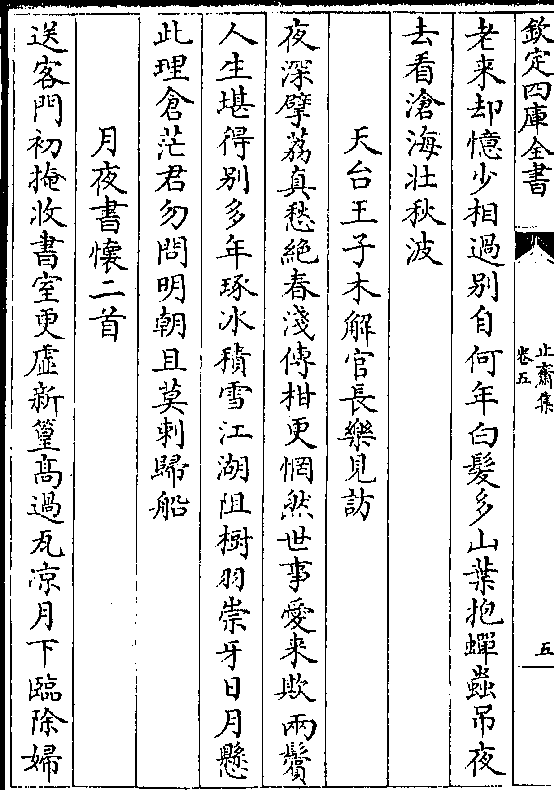 欽定四庫全書
止齋集
卷五
五
老来却憶少相過别自何年白髮多山葉抱蟬蟲吊夜
去看滄海壯秋波
天台王子木解官長樂見訪
夜深擘荔真愁絶春淺傳柑更惘然世事愛来欺兩鬢
人生堪得别多年琢冰積雪江湖阻樹羽崇牙日月懸
此理倉茫君勿問明朝且莫刺歸船
月夜書懐二首
送客門初掩收書室更虚新篁髙過瓦凉月下臨除婦